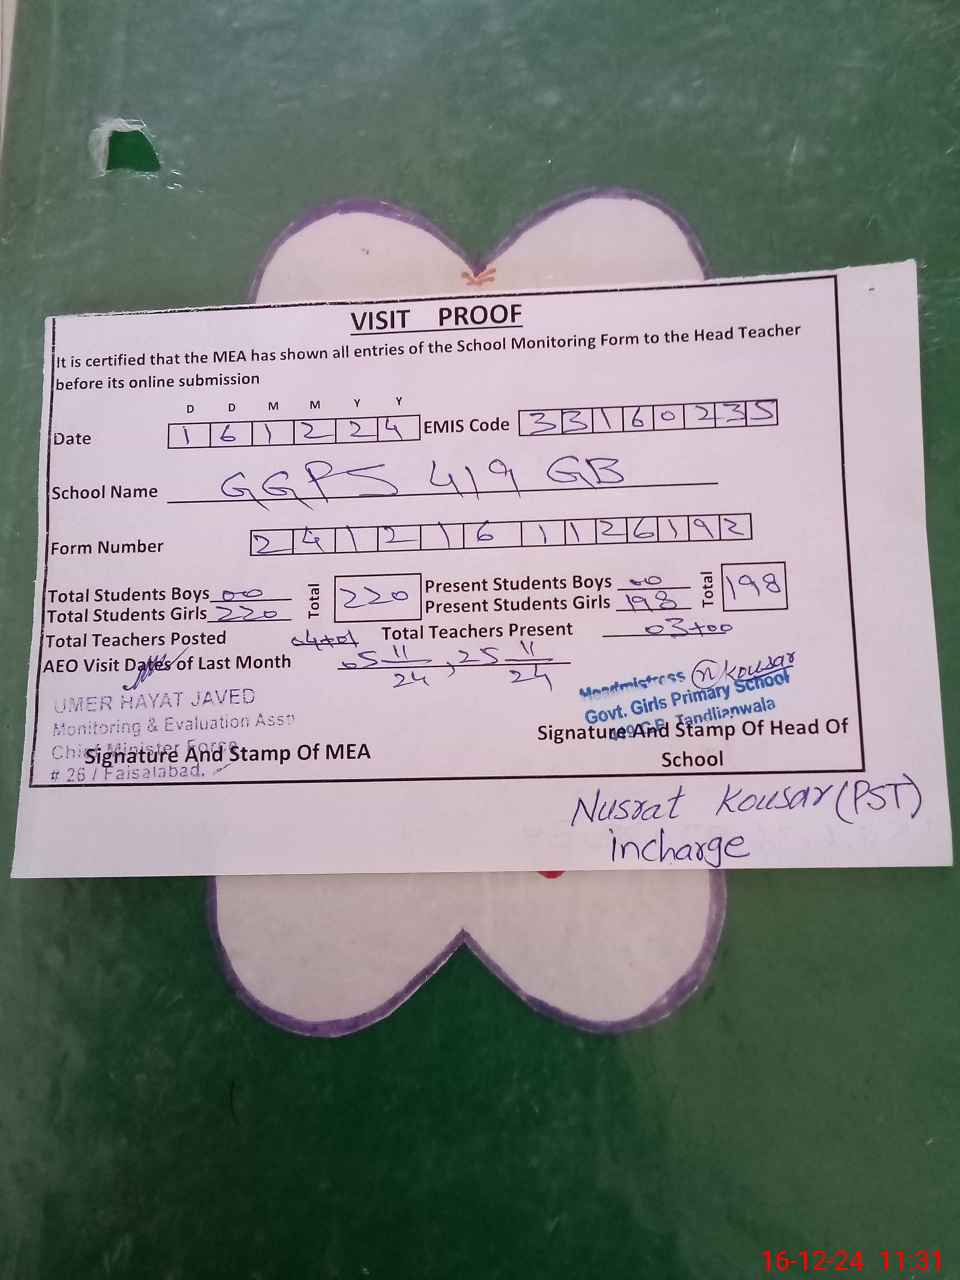 VISIT PROOF
It is certified that the MEA has shown all entries of the School Monitoring Form to the Head Teacher
before its online submission
D D M M Y Y
Date 1 6 1 2 2 4 EMIS Code 3 3 1 6 0 2 3 5
School Name GGPS 419 GB
Form Number 2 4 1 2 1 6 1 1 2 6 1 9 2
Total Students Boys 00 Total 220 Present Students Boys 00 Total 198
Total Students Girls 220 Present Students Girls 198
Total Teachers Posted 04+01 Total Teachers Present 03+00
AEO Visit Dates of Last Month 05 11/24, 25 11/24
UMER HAYAT JAVED
Monitoring & Evaluation Asst
Chief Minister Force
# 26 / Faisalabad.
Signature And Stamp Of MEA
Headmistress
n kousar
Govt. Girls Primary School
G.B. Tandlianwala
Signature And Stamp Of Head Of
School
Nusrat Kousar (PST)
incharge
16-12-24 11:31